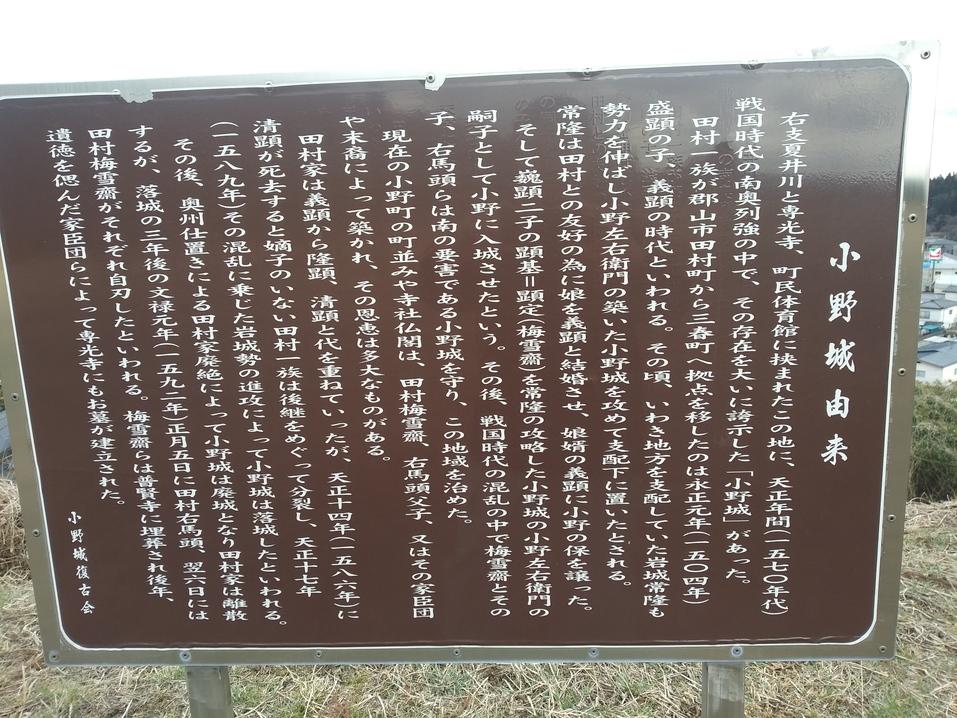 小野城由来
右支夏井川と専光寺、町民体育館に挟まれたこの地に、天正年間(一五七〇年代)
戦国時代の南奥列強の中で、その存在を大いに誇示した「小野城」があった。
田村一族が郡山市田村町から三春町へ拠点を移したのは永正元年(一五〇四年)
盛顕の子、義顕の時代といわれる。その頃、いわき地方を支配していた岩城常隆も
勢力を伸ばし小野左右衛門の築いた小野城を攻めて支配下に置いたとされる。
常隆は田村との友好の為に娘を義顕と結婚させ、娘婿の義顕に小野の保を譲った。
そして義顕二子の顕基=顕定(梅雪齋)を常隆の攻略した小野城の小野左右衛門の
嗣子として小野に入城させたという。その後、戦国時代の混乱の中で梅雪齋とその
子、右馬頭らは南の要害である小野城を守り、この地域を治めた。
現在の小野町の町並みや寺社仏閣は、田村梅雪齋、右馬頭父子、又はその家臣団
や末裔によって築かれ、その恩恵は多大なものがある。
田村家は義顕から隆顕、清顕と代を重ねていったが、天正十四年(一五八六年)に
清顕が死去すると嫡子のいない田村一族は後継をめぐって分裂し、天正十七年
(一五八九年)その混乱に乗じた岩城勢の進攻によって小野城は落城したといわれる。
その後、奥州仕置きによる田村家廃絶によって小野城は廃城となり田村家は離散
するが、落城の三年後の文禄元年(一五九二年)正月五日に田村右馬頭、翌六日には
田村梅雪齋がそれぞれ自刃したといわれる。梅雪齋らは普賢寺に埋葬され後年、
遺徳を偲んだ家臣団らによって専光寺にもお墓が建立された。
小野城復古会